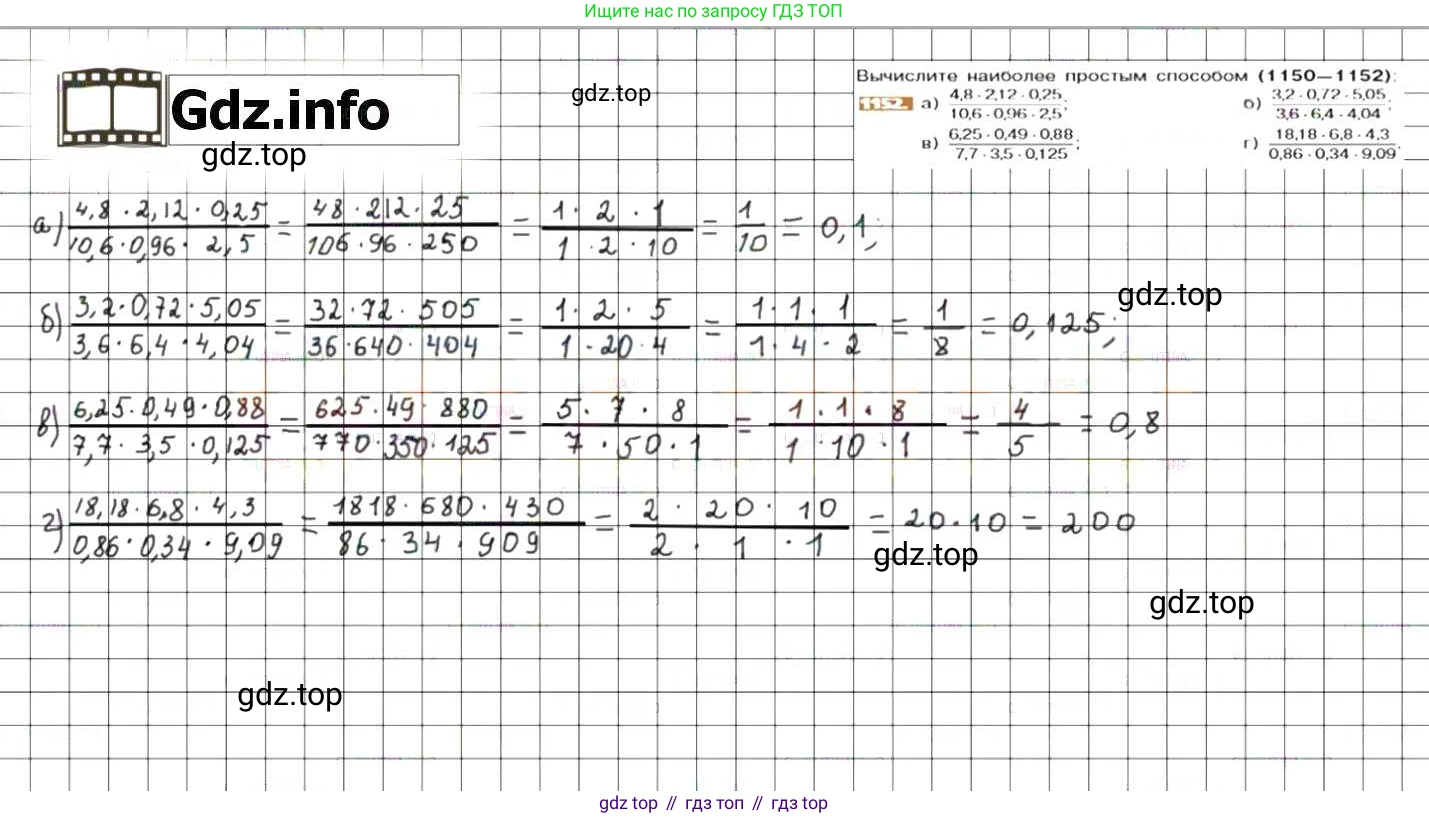 Ищите нас по запросу ГДЗ ТОП
Gdz.info
gdz.top
gdz.top
Вычислите наиболее простым способом (1150—1152):
1152. а) 4,8 · 2,12 · 0,25 / 10,6 · 0,96 · 2,5; б) 3,2 · 0,72 · 5,05 / 3,6 · 6,4 · 4,04;
в) 6,25 · 0,49 · 0,88 / 7,7 · 3,5 · 0,125; г) 18,18 · 6,8 · 4,3 / 0,86 · 0,34 · 9,09.
а) 4,8 · 2,12 · 0,25 / 10,6 · 0,96 · 2,5 = 48 · 212 · 25 / 106 · 96 · 250 = 1 · 2 · 1 / 1 · 2 · 10 = 1 / 10 = 0,1;
gdz.top
б) 3,2 · 0,72 · 5,05 / 3,6 · 6,4 · 4,04 = 32 · 72 · 505 / 36 · 640 · 404 = 1 · 2 · 5 / 1 · 20 · 4 = 1 · 1 · 1 / 1 · 4 · 2 = 1 / 8 = 0,125;
в) 6,25 · 0,49 · 0,88 / 7,7 · 3,5 · 0,125 = 625 · 49 · 880 / 770 · 350 · 125 = 5 · 7 · 8 / 7 · 50 · 1 = 1 · 1 · 8 / 1 · 10 · 1 = 4 / 5 = 0,8
г) 18,18 · 6,8 · 4,3 / 0,86 · 0,34 · 9,09 = 1818 · 680 · 430 / 86 · 34 · 909 = 2 · 20 · 10 / 2 · 1 · 1 = 20 · 10 = 200
gdz.top
gdz.top
gdz.top
gdz top // гдз топ // gdz top